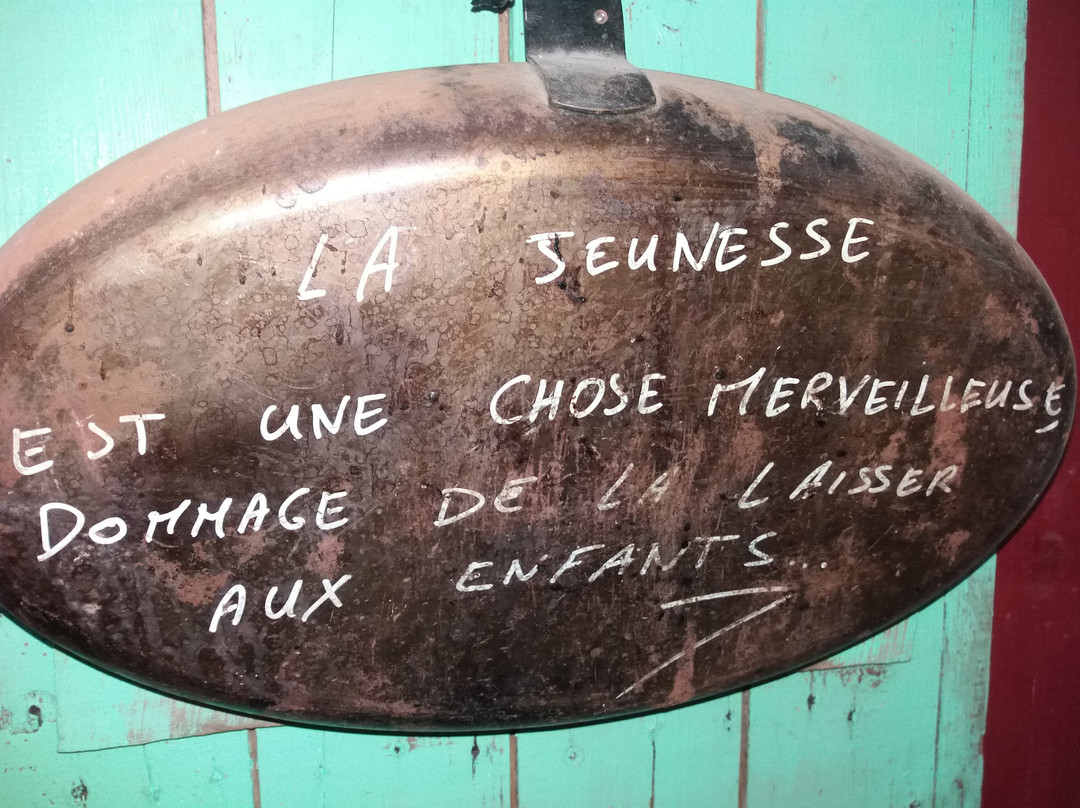 LA JEUNESSE
EST UNE CHOSE MERVEILLEUSE,
DOMMAGE DE LA LAISSER
AUX ENFANTS...